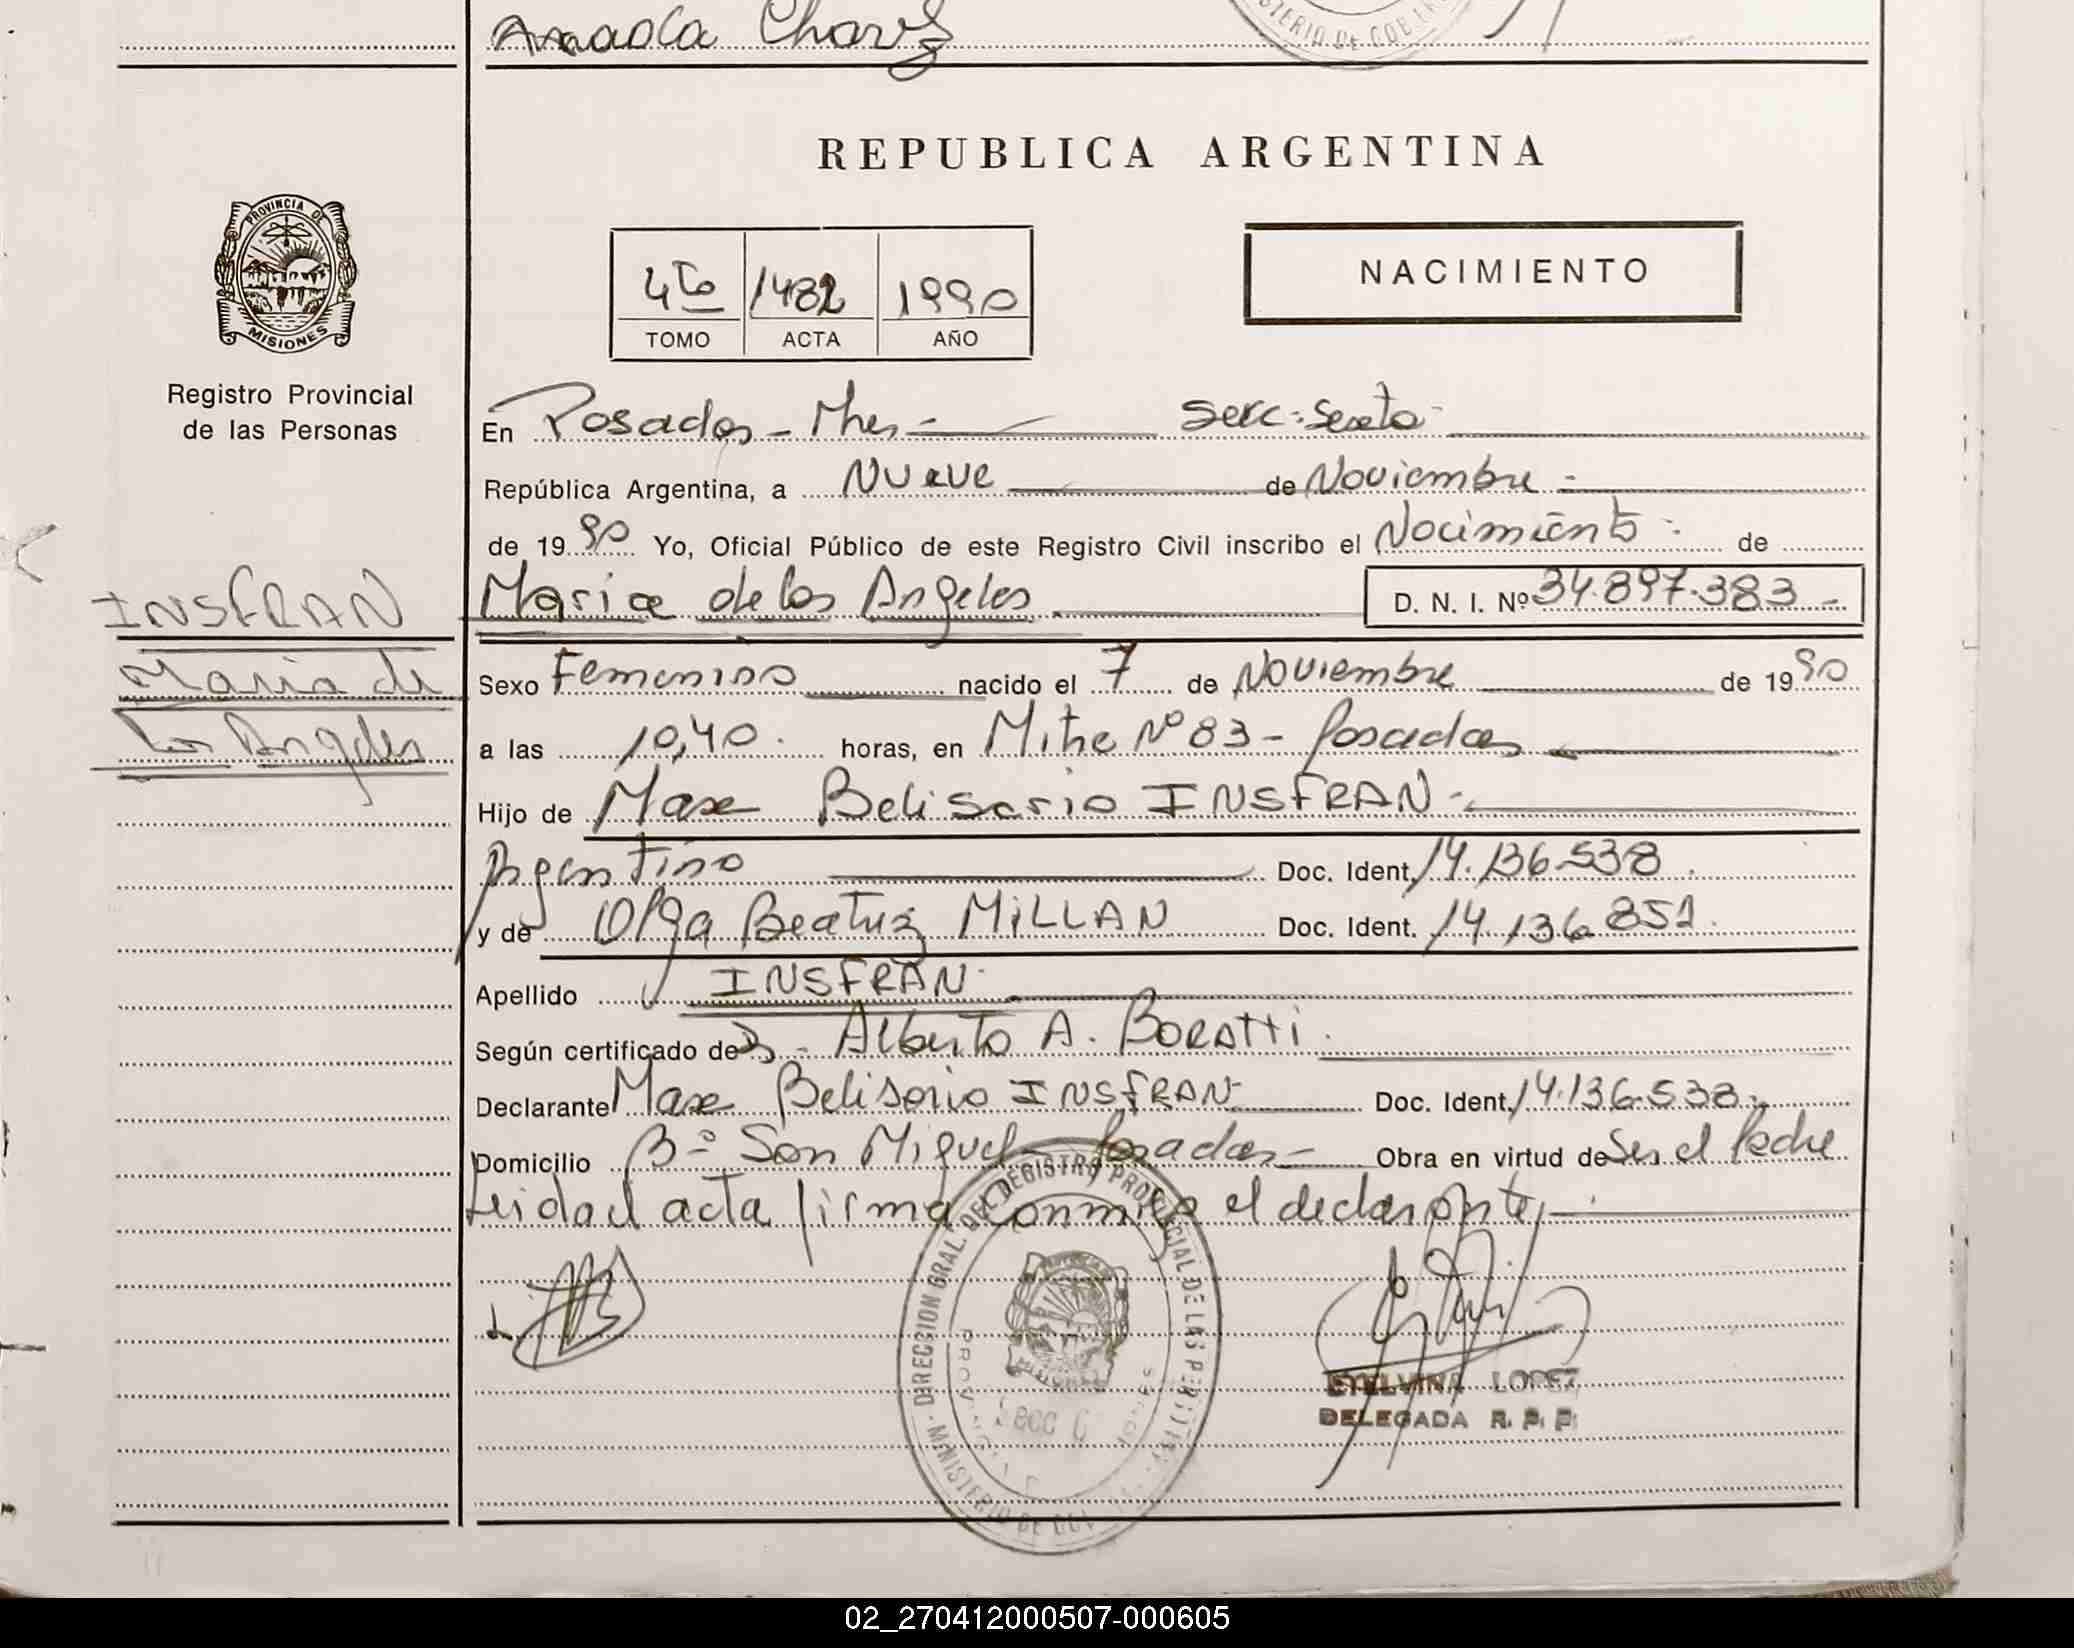 Chavez
MINISTERIO DE GOB
REPUBLICA ARGENTINA
PROVINCIA DE
MISIONES
Registro Provincial
de las Personas
4to 1482 1990
TOMO ACTA AÑO
NACIMIENTO
En Posadas - Mnes - Secc: Sexta -
República Argentina, a Nueve de Noviembre -
de 1990 Yo, Oficial Público de este Registro Civil inscribo el Nacimiento - de
Maria de los Angeles D. N. I. Nº 34.897.383 -
INSFRAN
Maria de
los Angeles
Sexo Femenino nacido el 7 de Noviembre de 1990
a las 10,40 horas, en Mitre Nº 83 - Posadas
Hijo de Max Belisario INSFRAN -
Argentino Doc. Ident. 14.136.538
y de Olga Beatriz MILLAN Doc. Ident. 14.136.851
Apellido INSFRAN
Según certificado de Dr. Alberto A. BORATTI
Declarante Max Belisario INSFRAN Doc. Ident. 14.136.538
Domicilio Bº San Miguel Posadas - Obra en virtud de Ser el Padre
Leida el acta firma conmigo el declarante
DIRECCION GRAL. DEL REGISTRO PROVINCIAL DE LAS PERS
MINISTERIO DE GOB
Secc 6
ETELVINA LOPEZ
DELEGADA R. P. P.
02_270412000507-000605